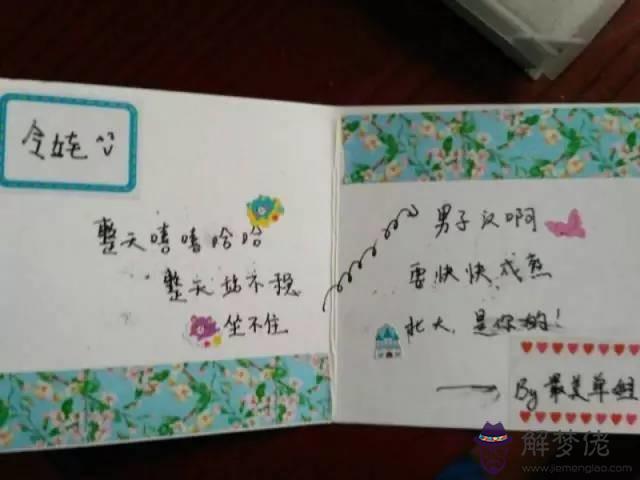 整天嘻嘻哈哈
整天站不稳
坐不住
男子汉啊
要快快成熟
北大,是你的!
By 最美单姐
解梦佬
www.jiemenglao.com